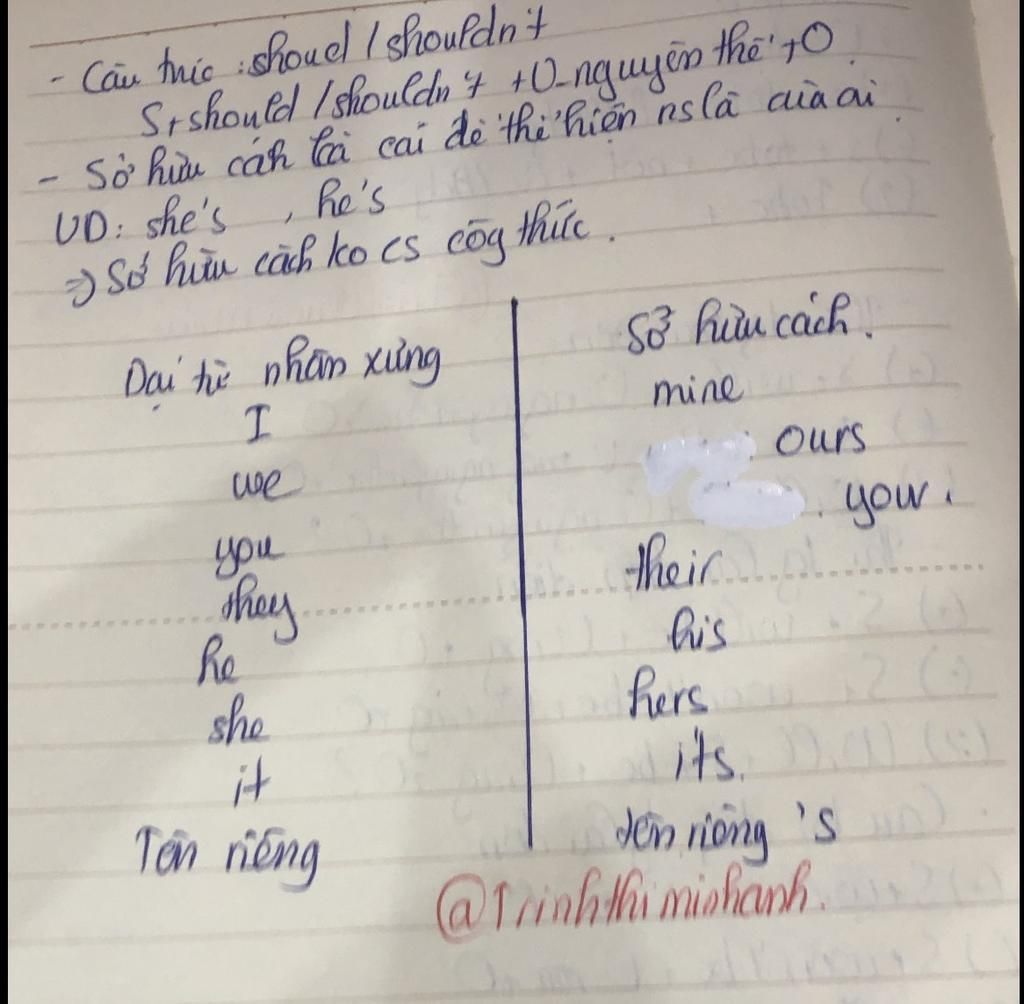 - Câu trúc : shoud / shouldn't
S + should / shouldn't + O - nguyên thể + O.
- Sở hữu cách là cái để thể hiện nó là của ai
VD: she's , he's
=> Sở hữu cách ko có côg thức.
Đại từ nhân xưng
I
we
you
they
he
she
it
Tên riêng
Sở hữu cách.
mine
ours
your.
their
his
hers
its.
tên riêng 's
@Trinhthiminhanh.